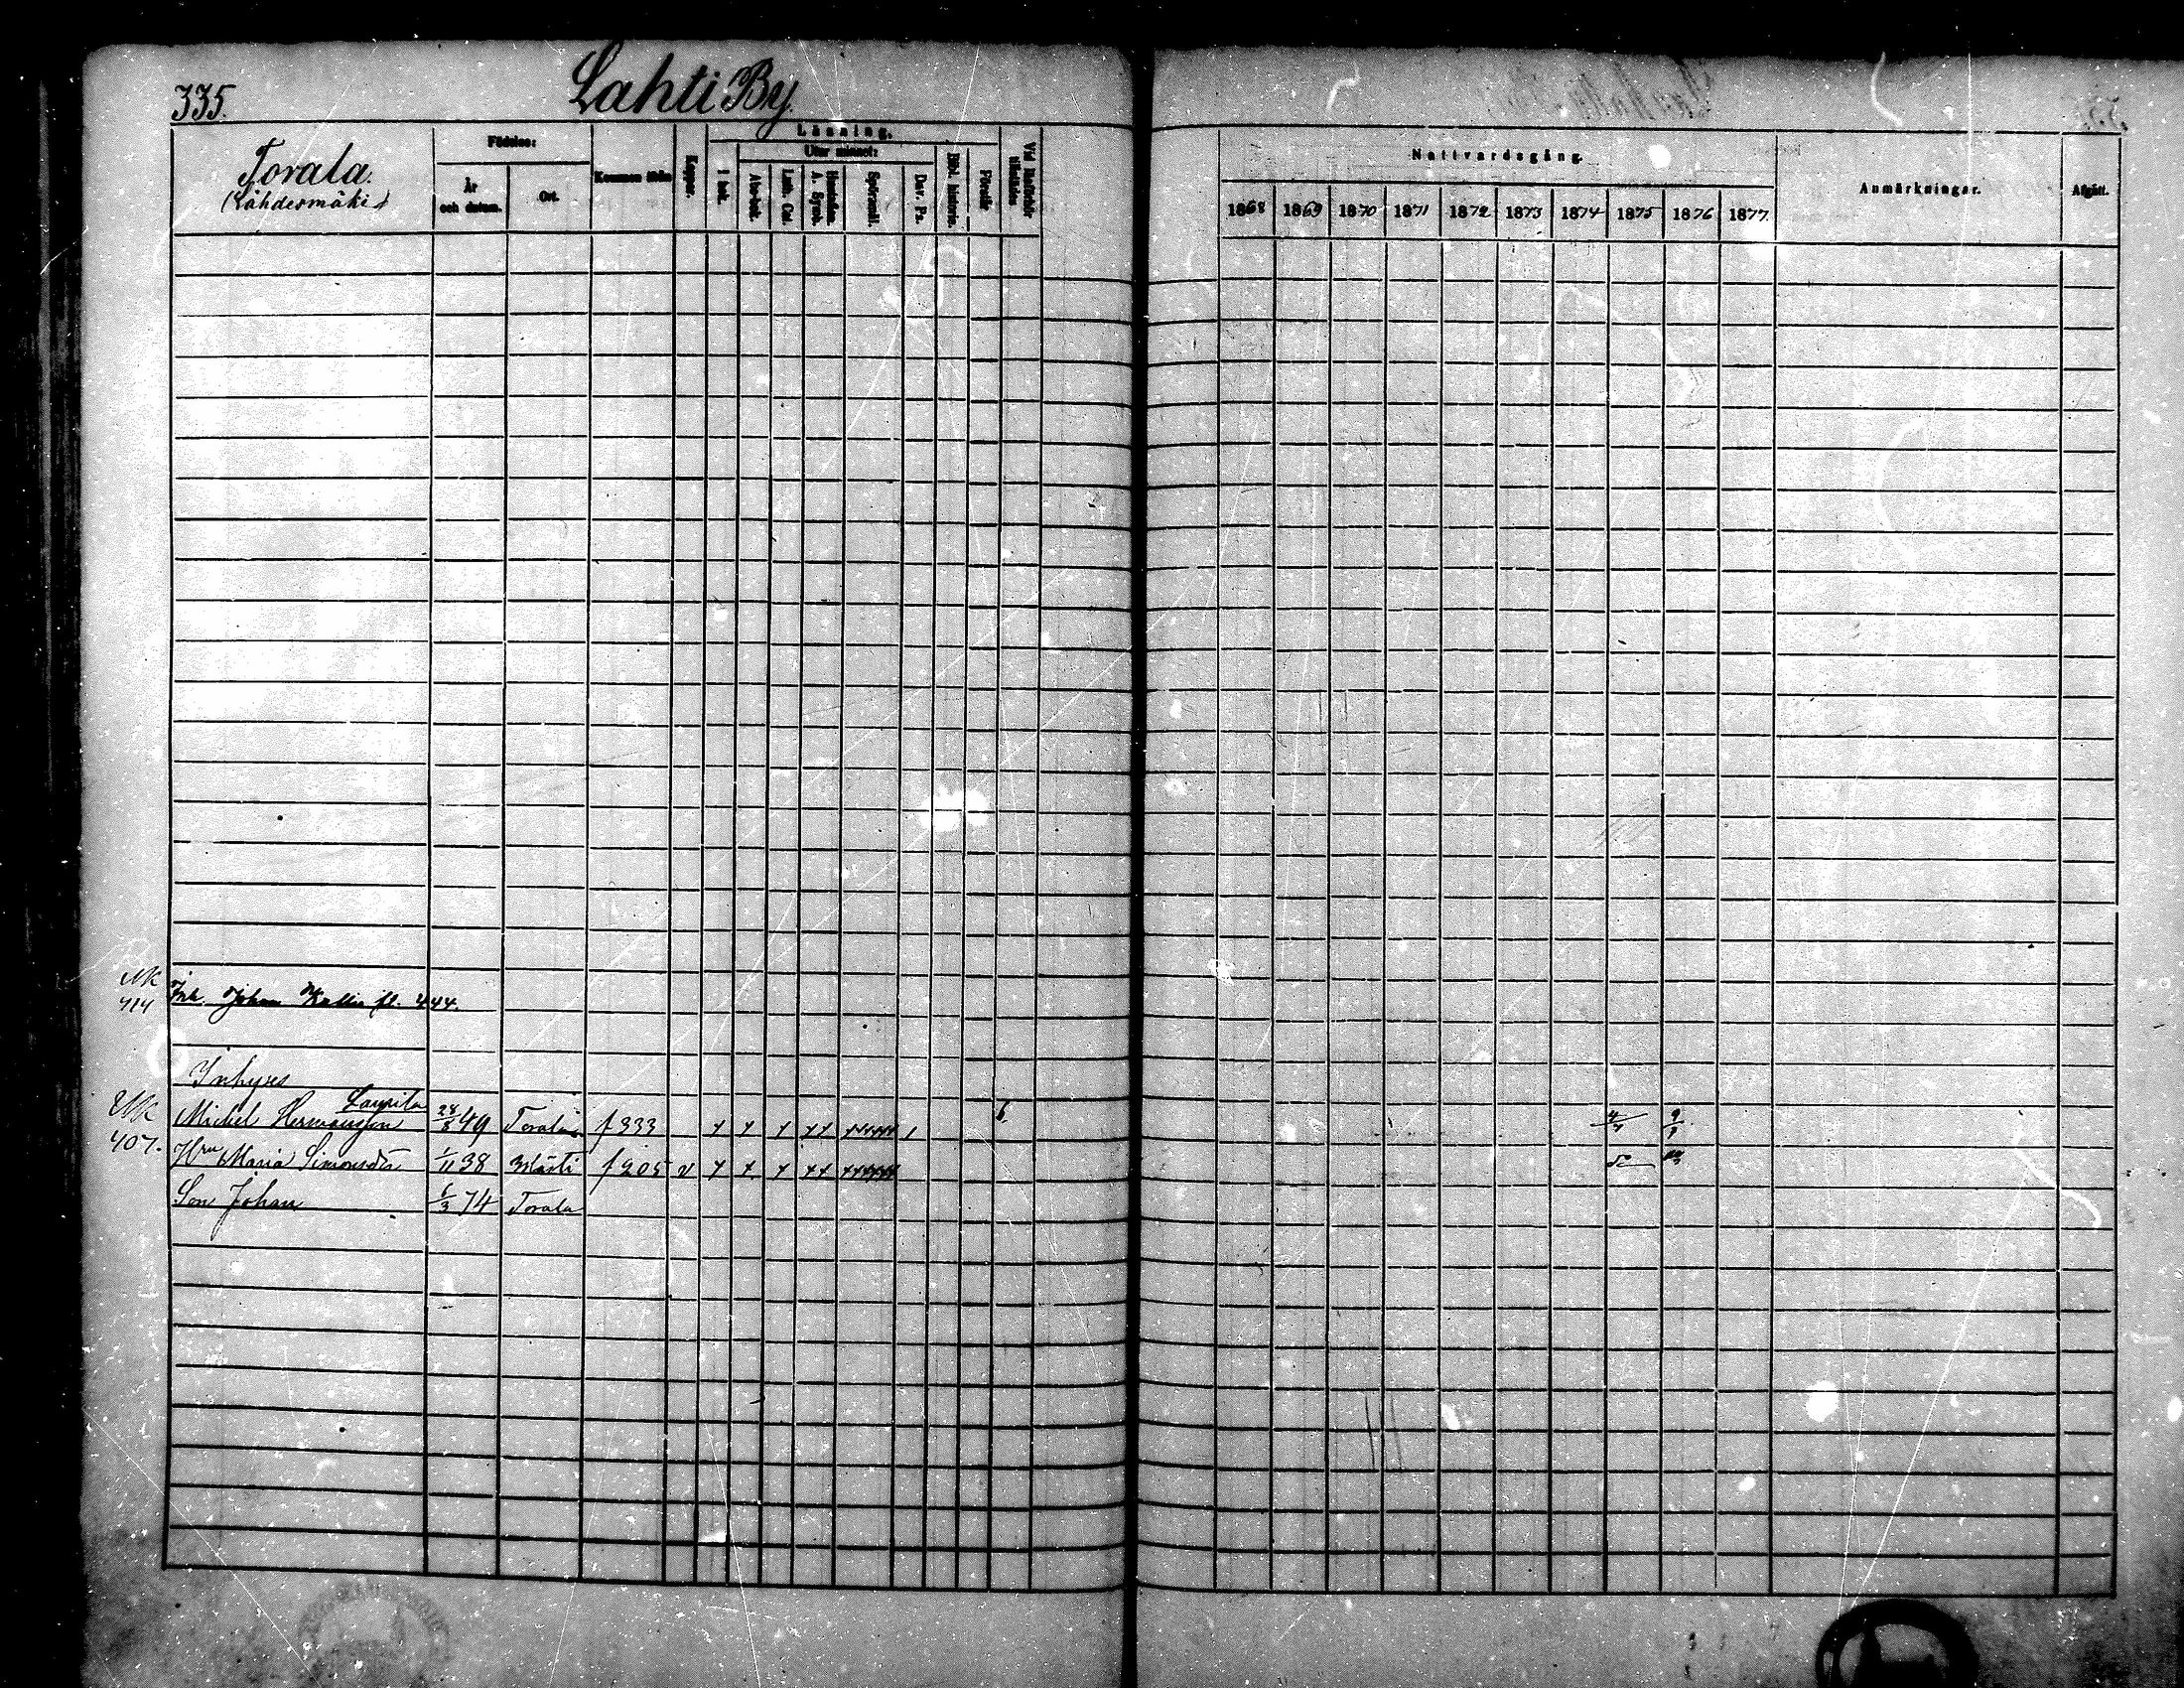 335.
Lahti By
Torala.
(Lähdesmäki)
Födelse:
År och datum.
Ort.
Kommen från
Koppor.
Läsning.
I bok.
Utur minnet:
Abc-bok.
Luth. Cat.
Hustaflan. A. Symb.
Spörsmål.
Dav. Ps.
Bibl. historia.
Förstår
Vid läsförhör tillstädes
Nattvardsgång.
1868 1869 1870 1871 1872 1873 1874 1875 1876 1877
Anmärkningar.
Afgått.
NK
414 Inh. Johan Kallin fl. 444.
Inhyses
Laurila
NK Michel Hermansson 28/3 49 Torala f 333 6
407. Hru Maria Simonsdr 1/11 38 f 205
Son Johan 6/3 74 Torala